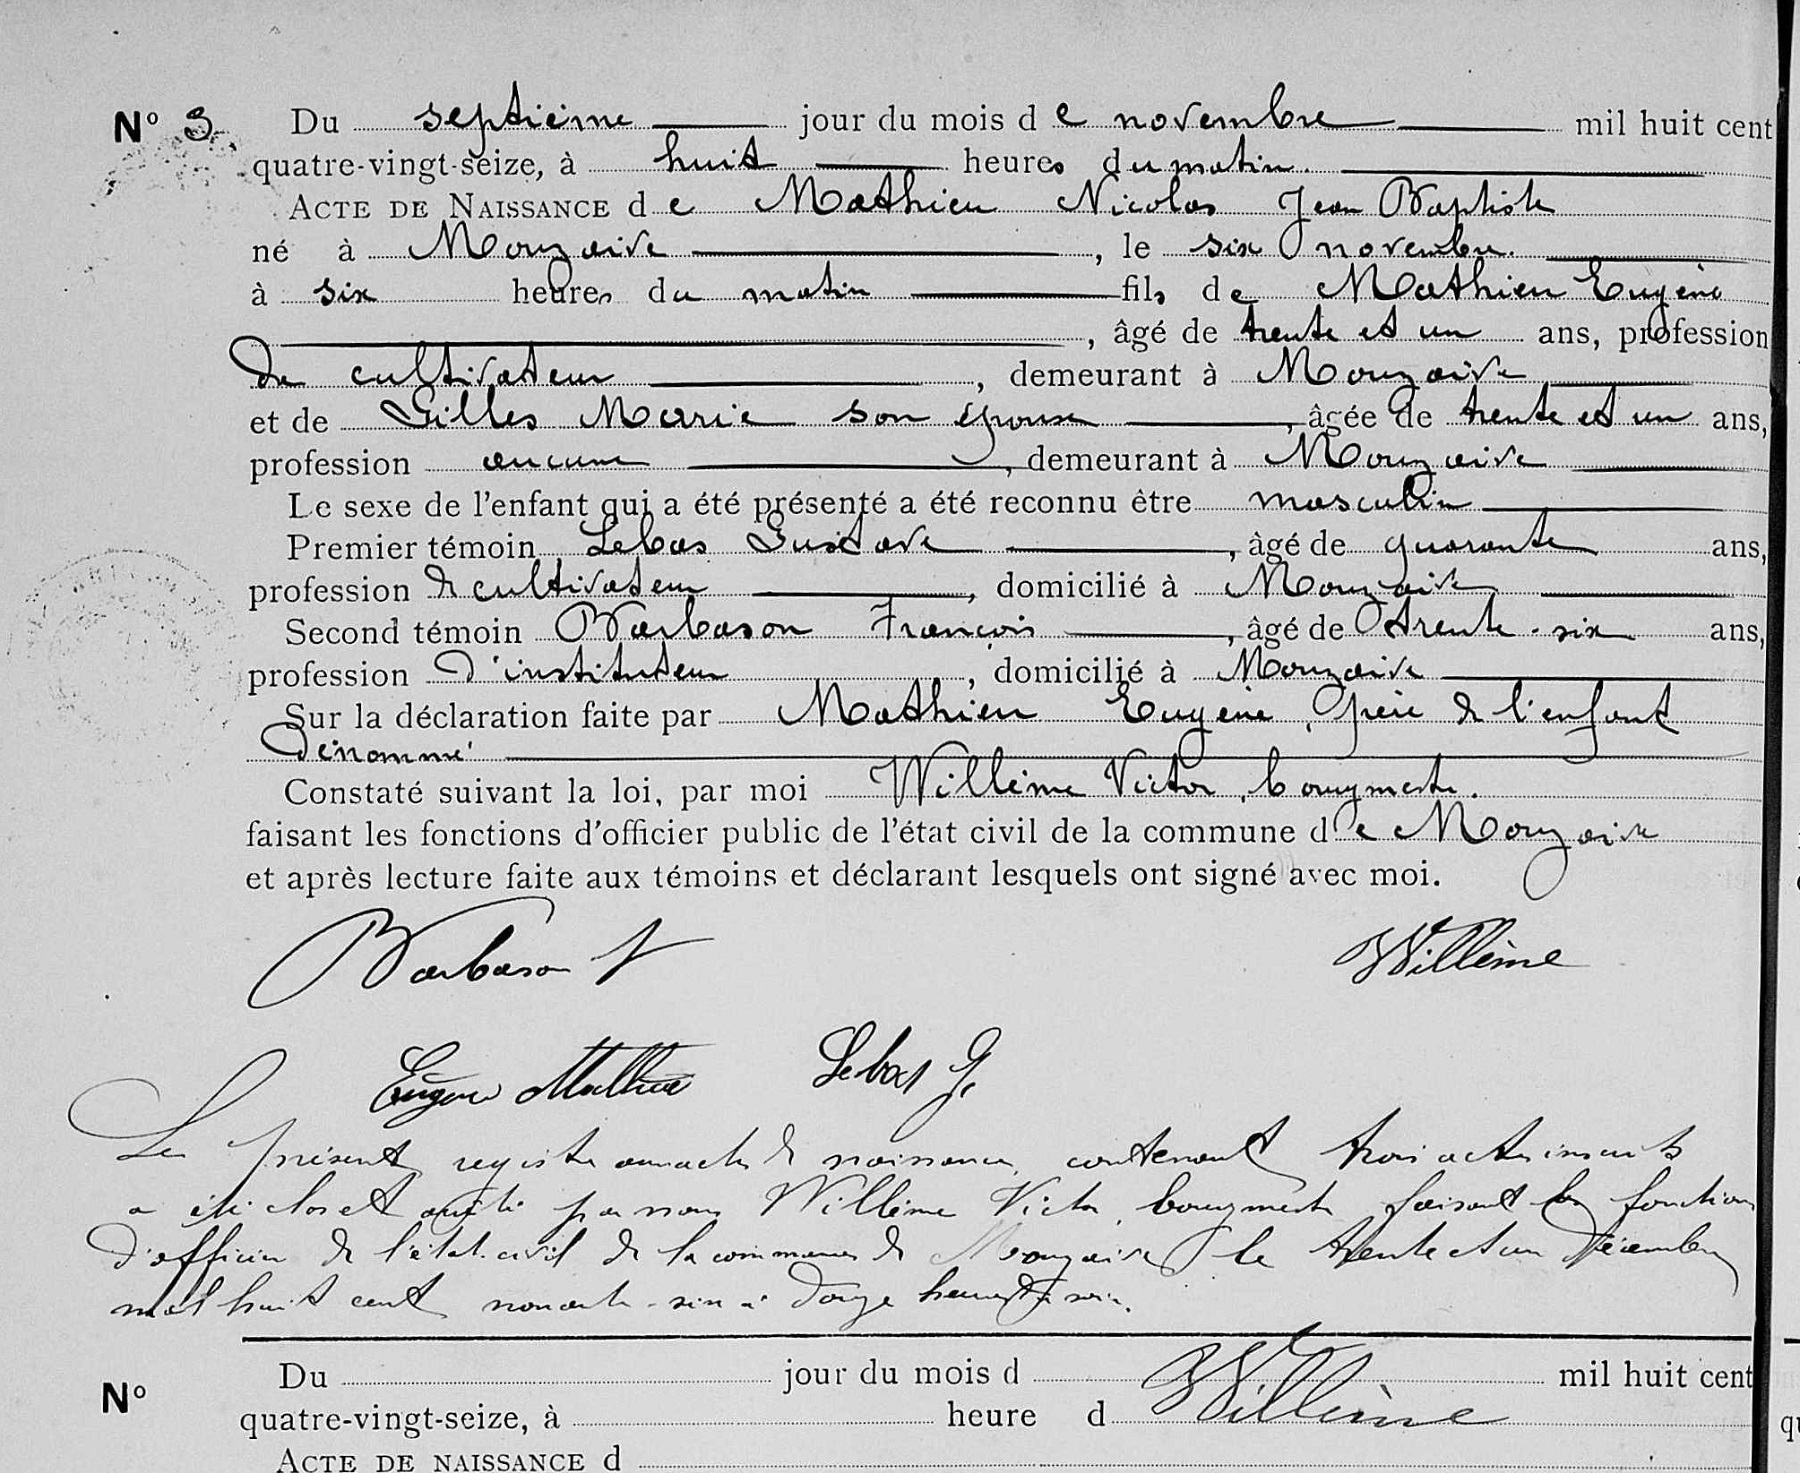 N° 3 Du septième jour du mois de novembre mil huit cent
quatre-vingt-seize, à huit heures du matin.
ACTE DE NAISSANCE de Mathieu Nicolas Jean Baptiste
né à Mouzaive, le six novembre.
à six heures du matin fils de Mathieu Eugène
, âgé de trente et un ans, profession
de cultivateur, demeurant à Mouzaive
et de Gilles Marie son épouse, âgée de trente et un ans,
profession aucune, demeurant à Mouzaive
Le sexe de l'enfant qui a été présenté a été reconnu être masculin
Premier témoin Lebas Gustave, âgé de quarante ans,
profession de cultivateur, domicilié à Mouzaive
Second témoin Barbason François, âgé de trente-six ans,
profession d'instituteur, domicilié à Mouzaive
Sur la déclaration faite par Mathieu Eugène, père de l'enfant
dénommé
Constaté suivant la loi, par moi Willème Victor, bourgmestre.
faisant les fonctions d'officier public de l'état civil de la commune de Mouzaive
et après lecture faite aux témoins et déclarant lesquels ont signé avec moi.
Barbason F Willème
Eugène Mathieu Lebas G.
Le présent registre aux actes de naissance, contenant trois actes inscrits
a été clos et arrêté par nous Willème Victor, bourgmestre faisant les fonctions
d'officier de l'état-civil de la commune de Mouzaive le trente et un Décembre
mil huit cent nonante-six à douze heures du soir.
Willème
N° Du jour du mois d mil huit cent
quatre-vingt-seize, à heure d
ACTE DE NAISSANCE d